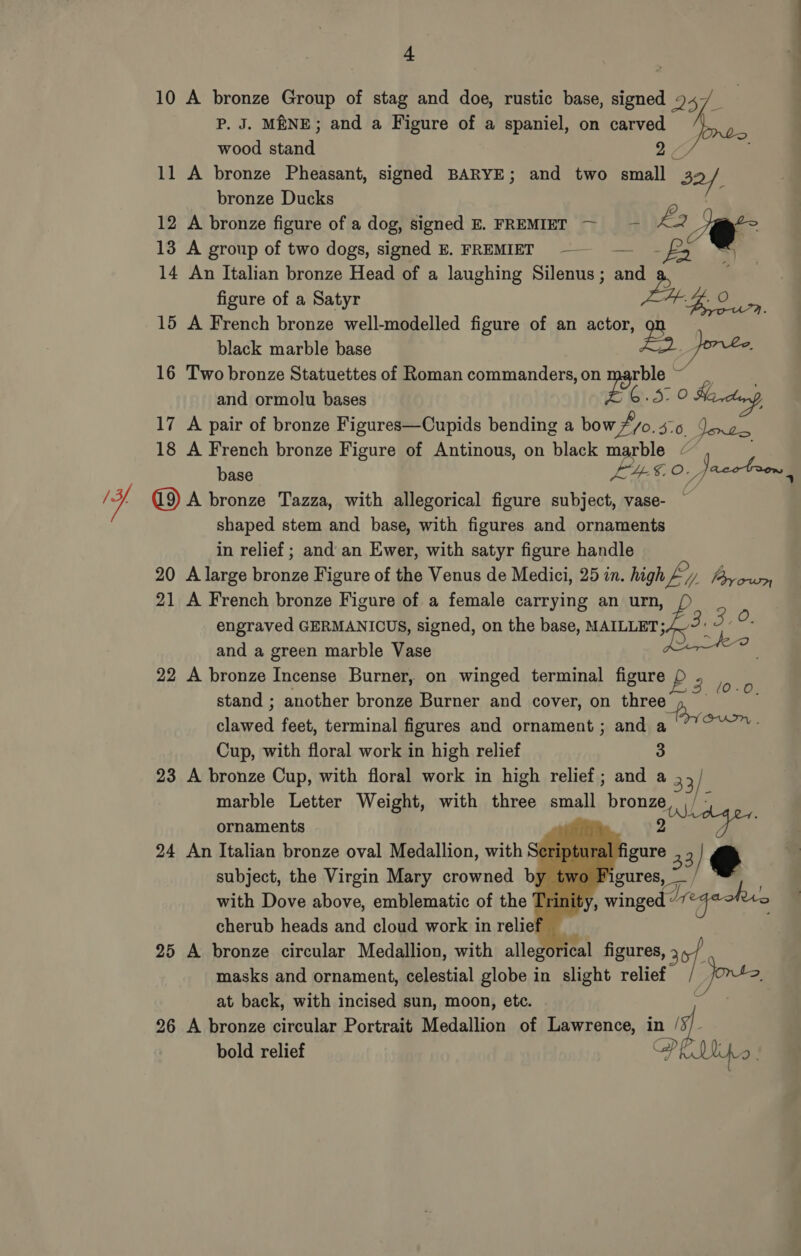 4
10 A bronze Group of stag and doe, rustic base, signed 25/-
P. J. MÊNE; and a Figure of a spaniel, on carved Jones
wood stand 2
11 A bronze Pheasant, signed BARYE; and two small 32/-
bronze Ducks
12 A bronze figure of a dog, signed E. FREMIET — - £2
13 A group of two dogs, signed E. FREMIET — — - £2
14 An Italian bronze Head of a laughing Silenus; and a
figure of a Satyr £4.4.0 Brown.
15 A French bronze well-modelled figure of an actor, on
black marble base £2. Jones.
16 Two bronze Statuettes of Roman commanders, on marble
and ormolu bases £6.5.0 Harding,
17 A pair of bronze Figures—Cupids bending a bow £10.5.0. Jones
18 A French bronze Figure of Antinous, on black marble
base £4.8.0. Jacobson
13/. 19 A bronze Tazza, with allegorical figure subject, vase-
shaped stem and base, with figures and ornaments
in relief; and an Ewer, with satyr figure handle
20 A large bronze Figure of the Venus de Medici, 25 in. high Brown
21 A French bronze Figure of a female carrying an urn,
engraved GERMANICUS, signed, on the base, MAILLET; £3.3.0.
and a green marble Vase
22 A bronze Incense Burner, on winged terminal figure £3.10.0.
stand; another bronze Burner and cover, on three
clawed feet, terminal figures and ornament; and a Brown.
Cup, with floral work in high relief 3
23 A bronze Cup, with floral work in high relief; and a 33/-
marble Letter Weight, with three small bronze
ornaments 2
24 An Italian bronze oval Medallion, with Scriptural figure 33/
subject, the Virgin Mary crowned by two Figures,
with Dove above, emblematic of the Trinity, winged
cherub heads and cloud work in relief
25 A bronze circular Medallion, with allegorical figures, 30/-
masks and ornament, celestial globe in slight relief Jones.
at back, with incised sun, moon, etc.
26 A bronze circular Portrait Medallion of Lawrence, in 18/-
bold relief Phillips.